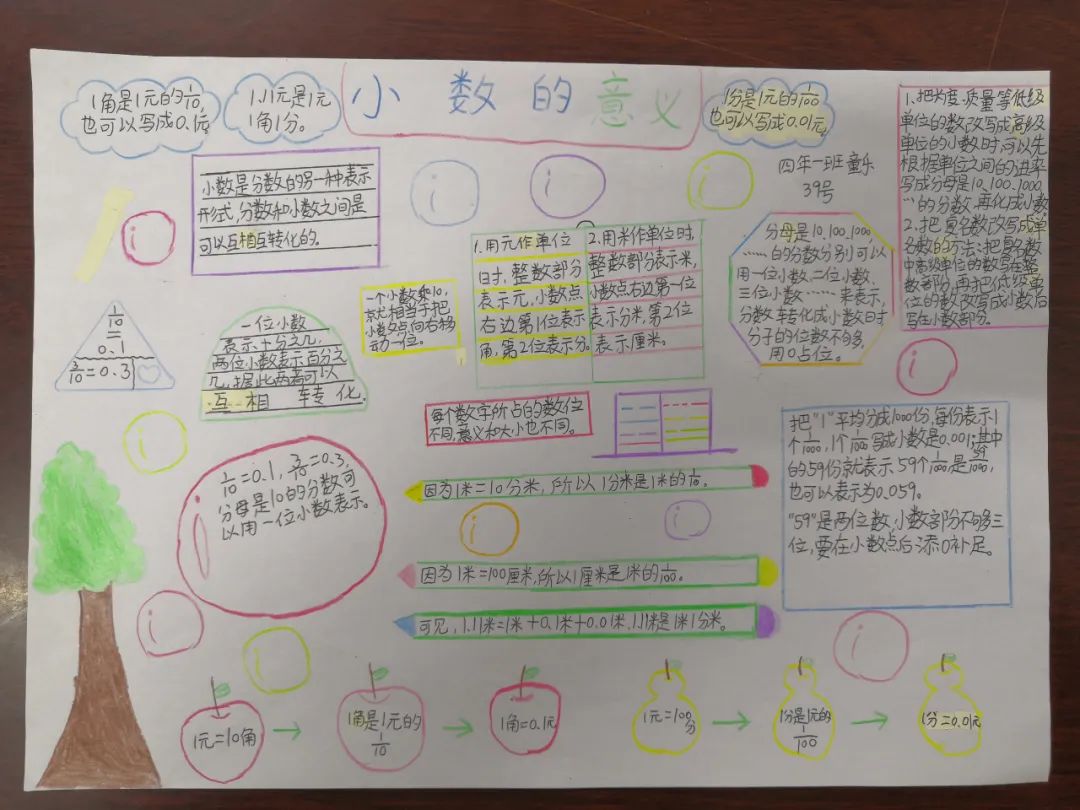 小数的意义
1角是1元的1/10,
也可以写成0.1元
1.11元是1元
1角1分。
1分是1元的1/100
也可以写成0.01元。
四年一班童乐
39号
小数是分数的另一种表示
形式,分数和小数之间是
可以互相互转化的。
1.把长度.质量等低级
单位的数改写成高级
单位的小数时,可以先
根据单位之间的进率
写成分母是10.100.1000
……的分数,再化成小数
2.把复名数改写成单
名数的方法:把复名数
中高级单位的数写在整
数部分,再把低级单
位的数改写成小数后
写在小数部分。
1/10
=
0.1
3/10=0.3
一位小数
表示十分之几,
两位小数表示百分之
几,据此两者可以
互相转化.
一个小数乘10,
就相当于把
小数点向右移
动一位。
1.用元作单位
时,整数部分
表示元,小数点
右边第1位表示
角,第2位表示分.
2.用米作单位时,
整数部分表示米,
小数点右边第一位
表示分米,第2位
表示厘米。
分母是10,100,1000,
……的分数分别可以
用一位小数、二位小数、
三位小数……来表示,
分数转化成小数时
分子的位数不够多,
用0占位。
每个数字所占的数位
不同,意义和大小也不同。
1/10=0.1, 3/10=0.3,
分母是10的分数可
以用一位小数表示。
因为1米=10分米,所以1分米是1米的1/10。
因为1米=100厘米,所以1厘米是1米的1/100。
可见,1.11米=1米+0.1米+0.01米.1.1米是1米1分米。
把"1"平均分成1000份,每份表示1
个1/1000,1个1/1000写成小数是0.001;其中
的59份就表示59个1/1000,是59/1000,
也可以表示为0.059。
"59"是两位数,小数部分不够三
位,要在小数点后添0补足。
1元=10角
1角是1元的
1/10
1角=0.1元
1元=100
分
1分是1元的
1/100
1分=0.01元